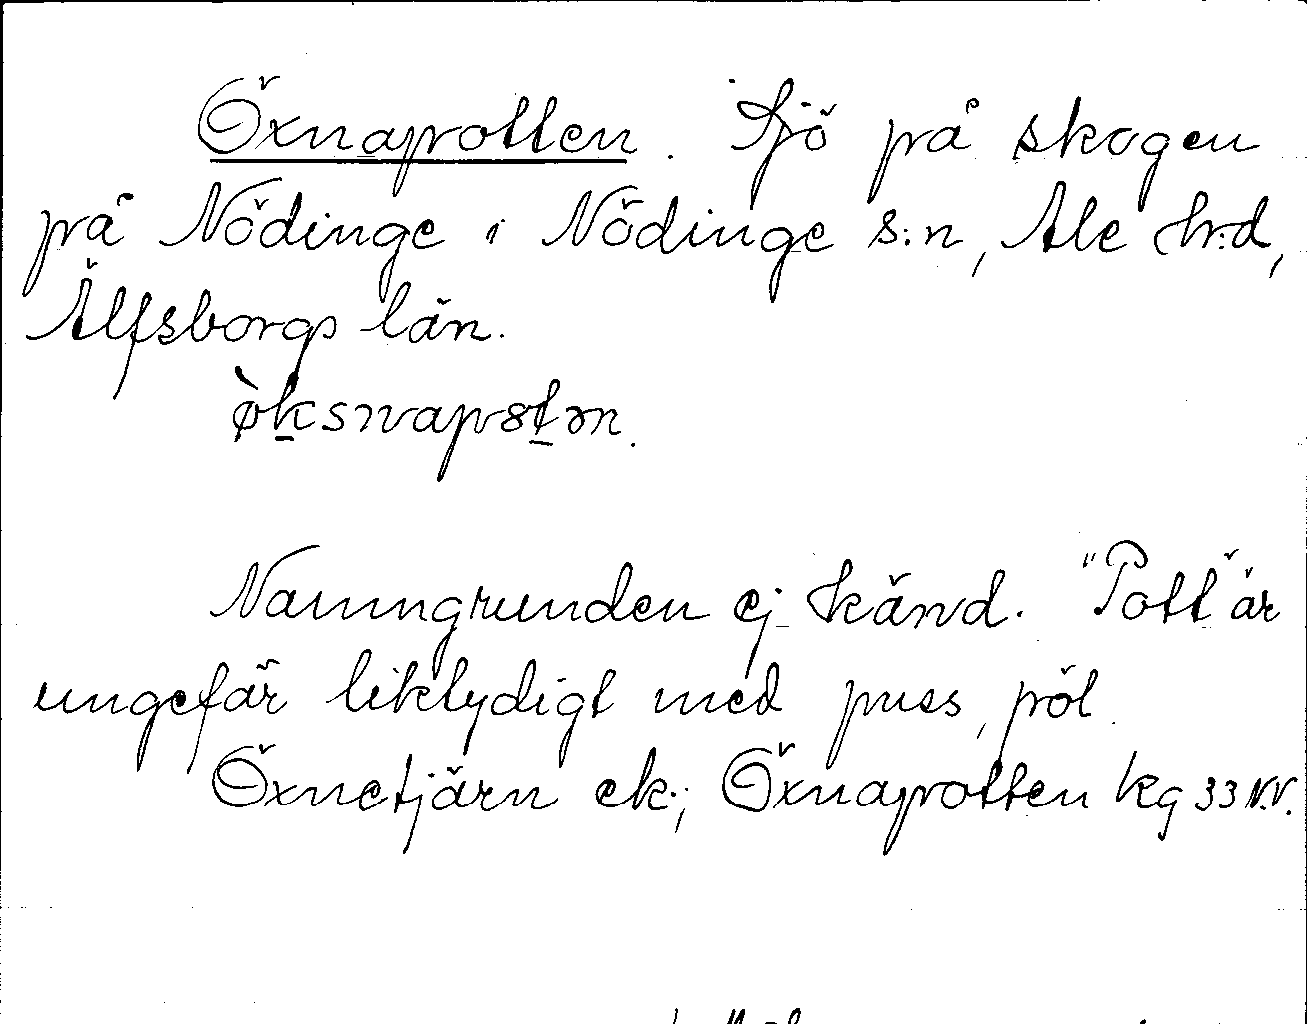 Öxnapotten. Sjö på skogen
på Nödinge i Nödinge s:n, Ale h:d,
Älfsborgs län.
Namngrunden ej känd. "Pott" är
ungefär liktydigt med puss, pöl.
Öxnetjärn ek.; Öxnapotten kg 33 N.V.